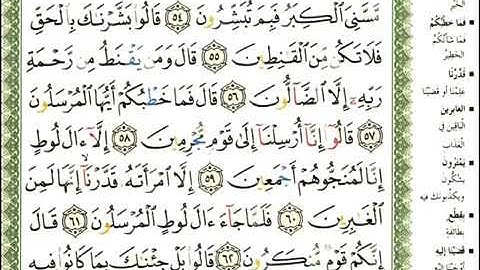 مَّسَّنِيَ ٱلْكِبَرُ فَبِمَ تُبَشِّرُونَ ٥٤ قَالُوا۟ بَشَّرْنَـٰكَ بِٱلْحَقِّ
فَلَا تَكُن مِّنَ ٱلْقَـٰنِطِينَ ٥٥ قَالَ وَمَن يَقْنَطُ مِن رَّحْمَةِ
رَبِّهِۦٓ إِلَّا ٱلضَّآلُّونَ ٥٦ قَالَ فَمَا خَطْبُكُمْ أَيُّهَا ٱلْمُرْسَلُونَ
٥٧ قَالُوٓا۟ إِنَّآ أُرْسِلْنَآ إِلَىٰ قَوْمٍ مُّجْرِمِينَ ٥٨ إِلَّآ ءَالَ لُوطٍ
إِنَّا لَمُنَجُّوهُمْ أَجْمَعِينَ ٥٩ إِلَّا ٱمْرَأَتَهُۥ قَدَّرْنَآ ۙ إِنَّهَا لَمِنَ
ٱلْغَـٰبِرِينَ ٦٠ فَلَمَّا جَآءَ ءَالَ لُوطٍ ٱلْمُرْسَلُونَ ٦١ قَالَ
إِنَّكُمْ قَوْمٌ مُّنكَرُونَ ٦٢ قَالُوا۟ بَلْ جِئْنَـٰكَ بِمَا كَانُوا۟ فِيهِ
الخَبَرُ
فَمَا خَطْبُكُمْ
فَمَا شَأْنُكُمْ
الخَطِيرُ
قَدَّرْنَا
عَلِمْنَا أو قَضَيْنَا
الغَابِرِينَ
البَاقِينَ فِي
العَذَابِ
يَمْتَرُونَ
يَشُكُّونَ
وَيُكَذِّبُونَكَ فِيهِ
بِقِطْعٍ
بِطَائِفَةٍ
قَضَيْنَا إِلَيْهِ